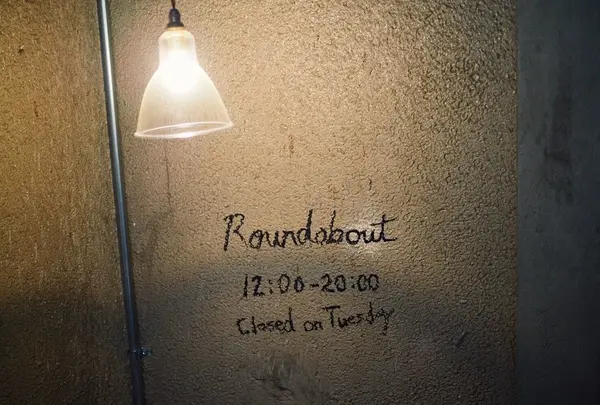 Roundabout
12:00-20:00
Closed on Tuesday